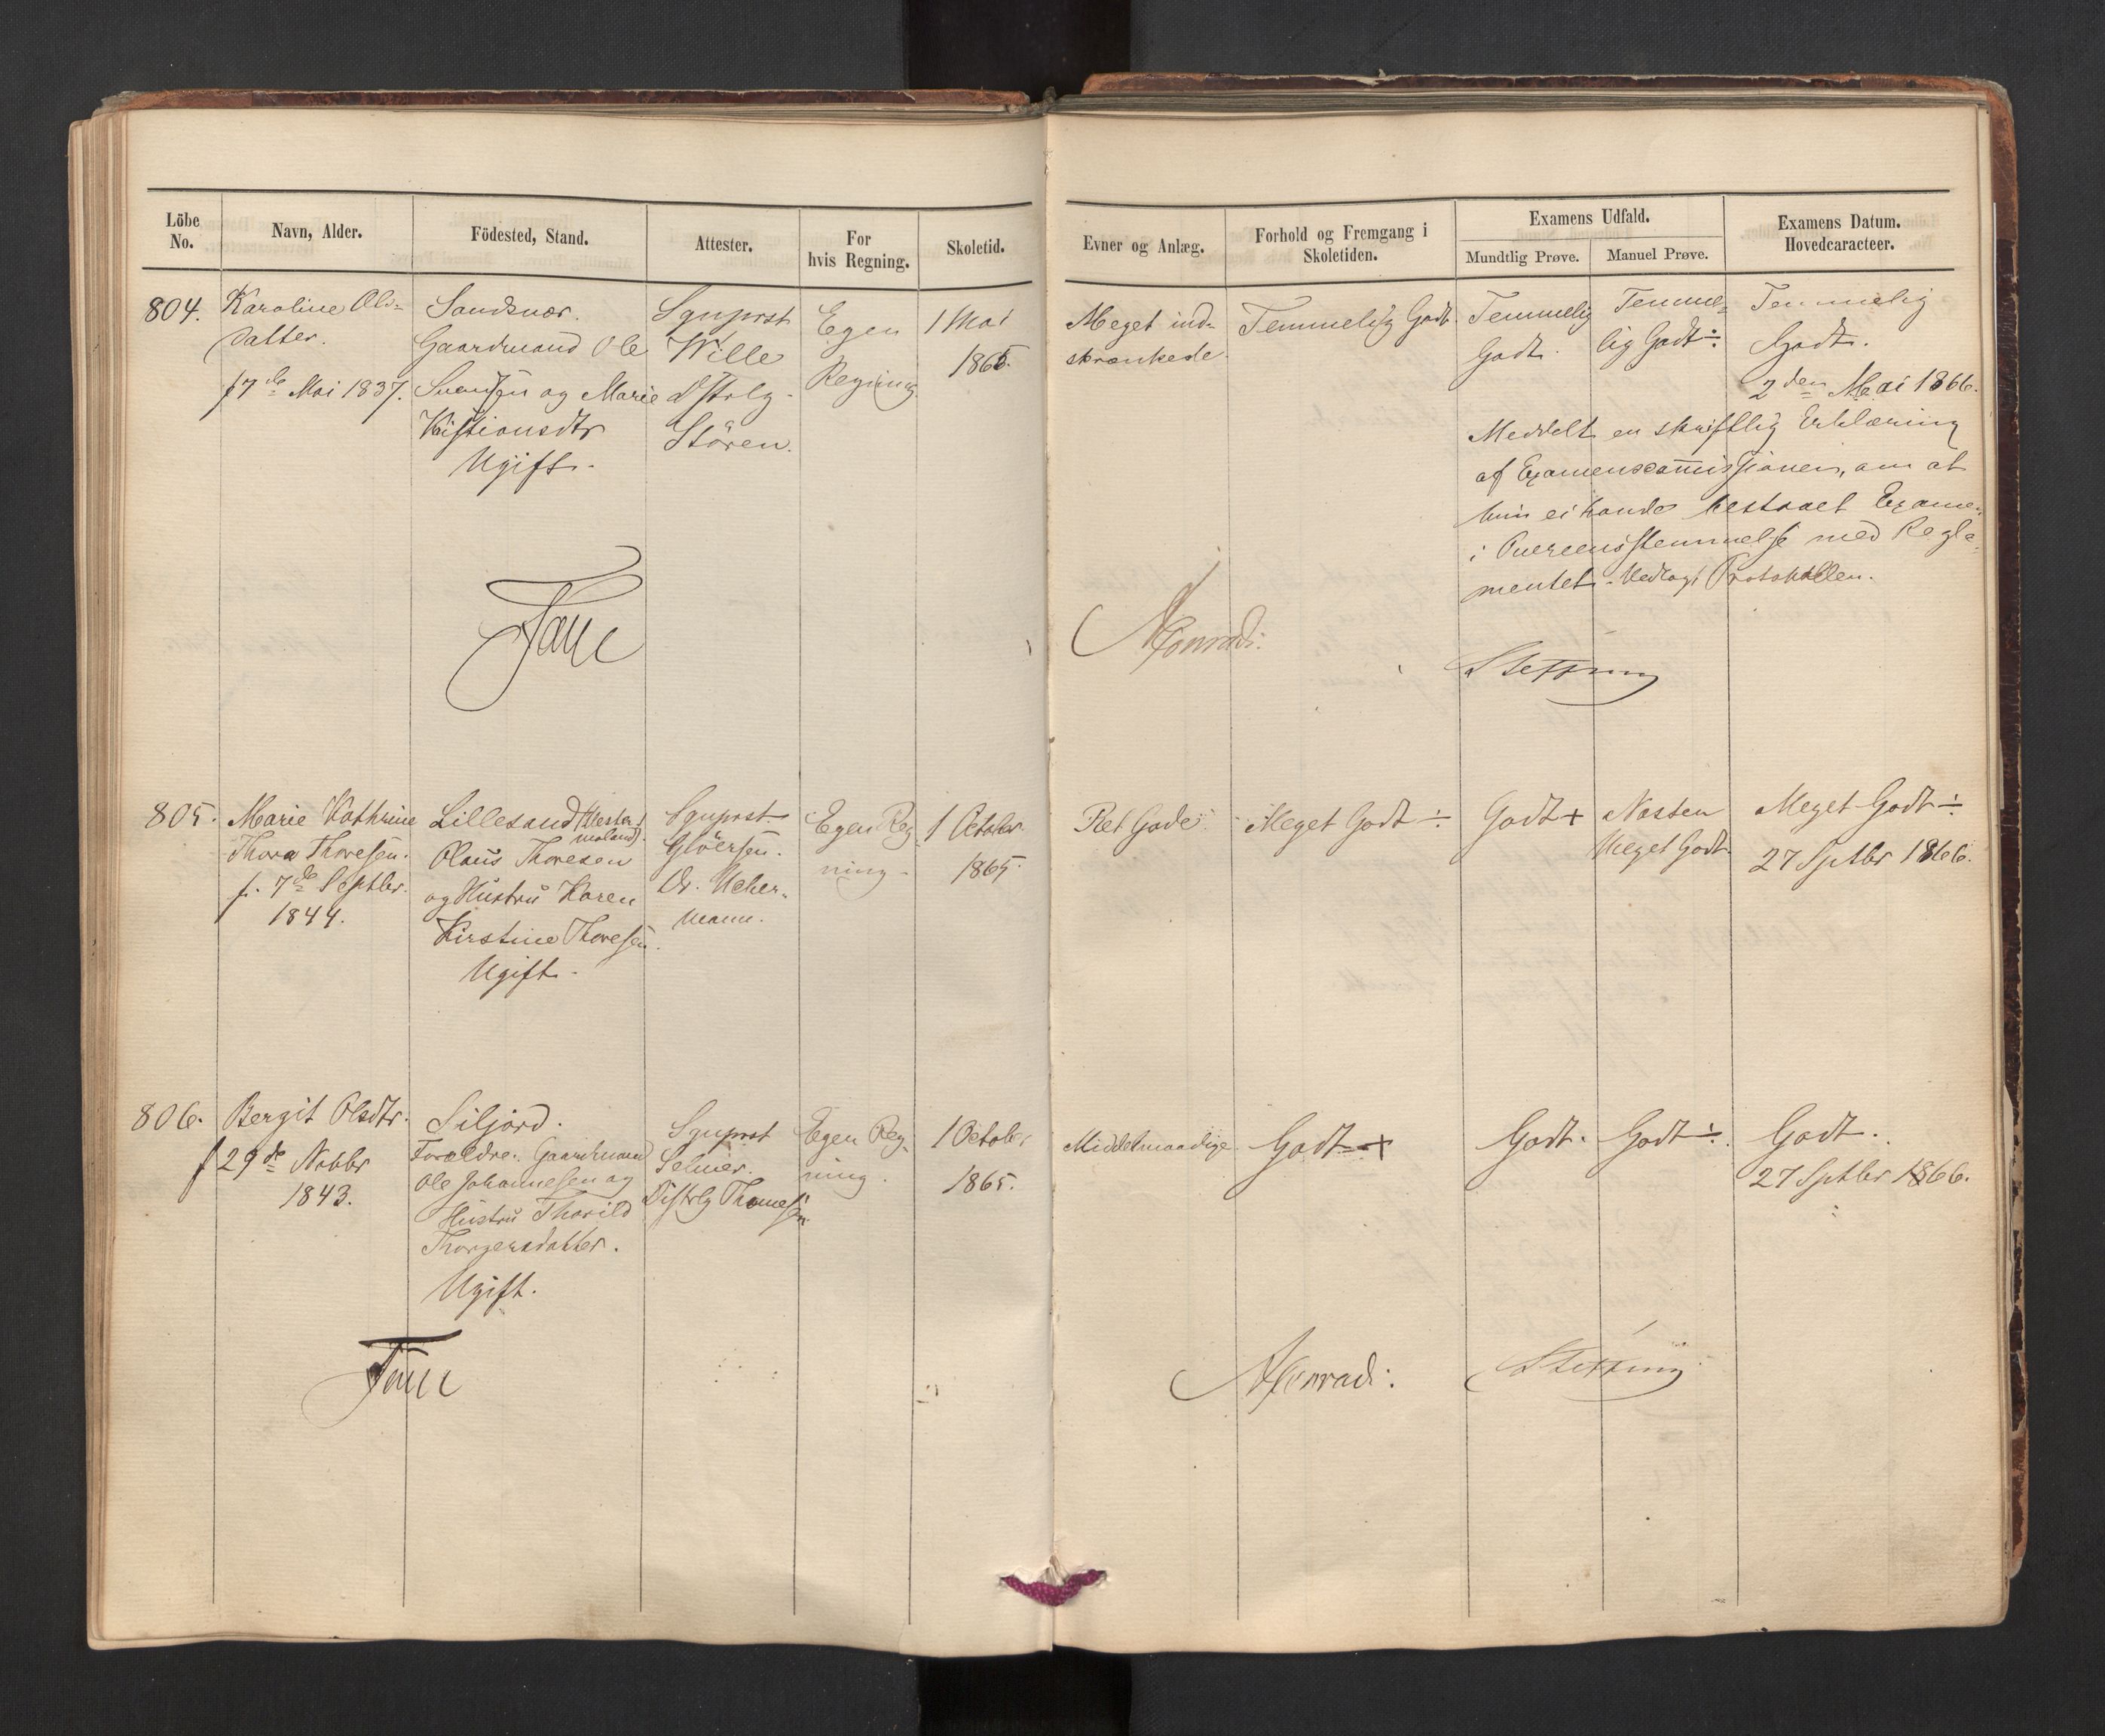 Löbe No.
Navn, Alder.
Födested, Stand.
Attester.
For hvis Regning.
Skoletid.
Evner og Anlæg.
Forhold og Fremgang i Skoletiden.
Examens Udfald.
Mundtlig Prøve.
Manuel Prøve.
Examens Datum. Hovedcaracteer.
804.
Karoline Ols-
datter.
f 7de Mai 1837.
Sandsvær.
Gaardmand Ole
Svendsen og Marie
Kristiansdtr
Ugift.
Sgnprst
Wille
Dstrlg
Stören.
Egen
Regning
1 Mai
1865.
Meget ind-
skrænkede.
Temmelig Godt.
Temmelig
Godt.
Temme-
lig Godt ÷.
Temmelig
Godt.
2den Mai 1866.
Meddelt en skriftlig Erklæring
af Examenscommissionen, om at
hun ei havde bestaaet Examen
i Overeensstemmelse med Regle-
mentet. Vedlagt Protokollen.
Faye
Monrad.
Steffens
805.
Marie Kathrine
Thora Thoresen.
f. 7de Septbr.
1844.
Lillesand (Vester
moland).
Olaus Thoresen
og Hustru Karen
Kirstine Thoresen.
Ugift.
Sgnprst
Glöersen.
Dr. Ucher-
mann.
Egen Reg-
ning.
1 October
1865.
Ret Gode.
Meget Godt ÷
Godt +
Næsten
Meget Godt.
Meget Godt ÷
27 Sptbr 1866.
806.
Bergit Olsdtr.
f 29de Novbr
1843.
Siljord.
Forældre: Gaardmand
Ole Johannesen og
Hustru Thorild
Thorgersdatter.
Ugift.
Sgnprst
Selmer.
Distrlg Thomesen
Egen Reg-
ning.
1 October
1865.
Middelmaadige
Godt +
Godt.
Godt ÷.
Godt.
27 Sptbr 1866.
Faye
Monrad.